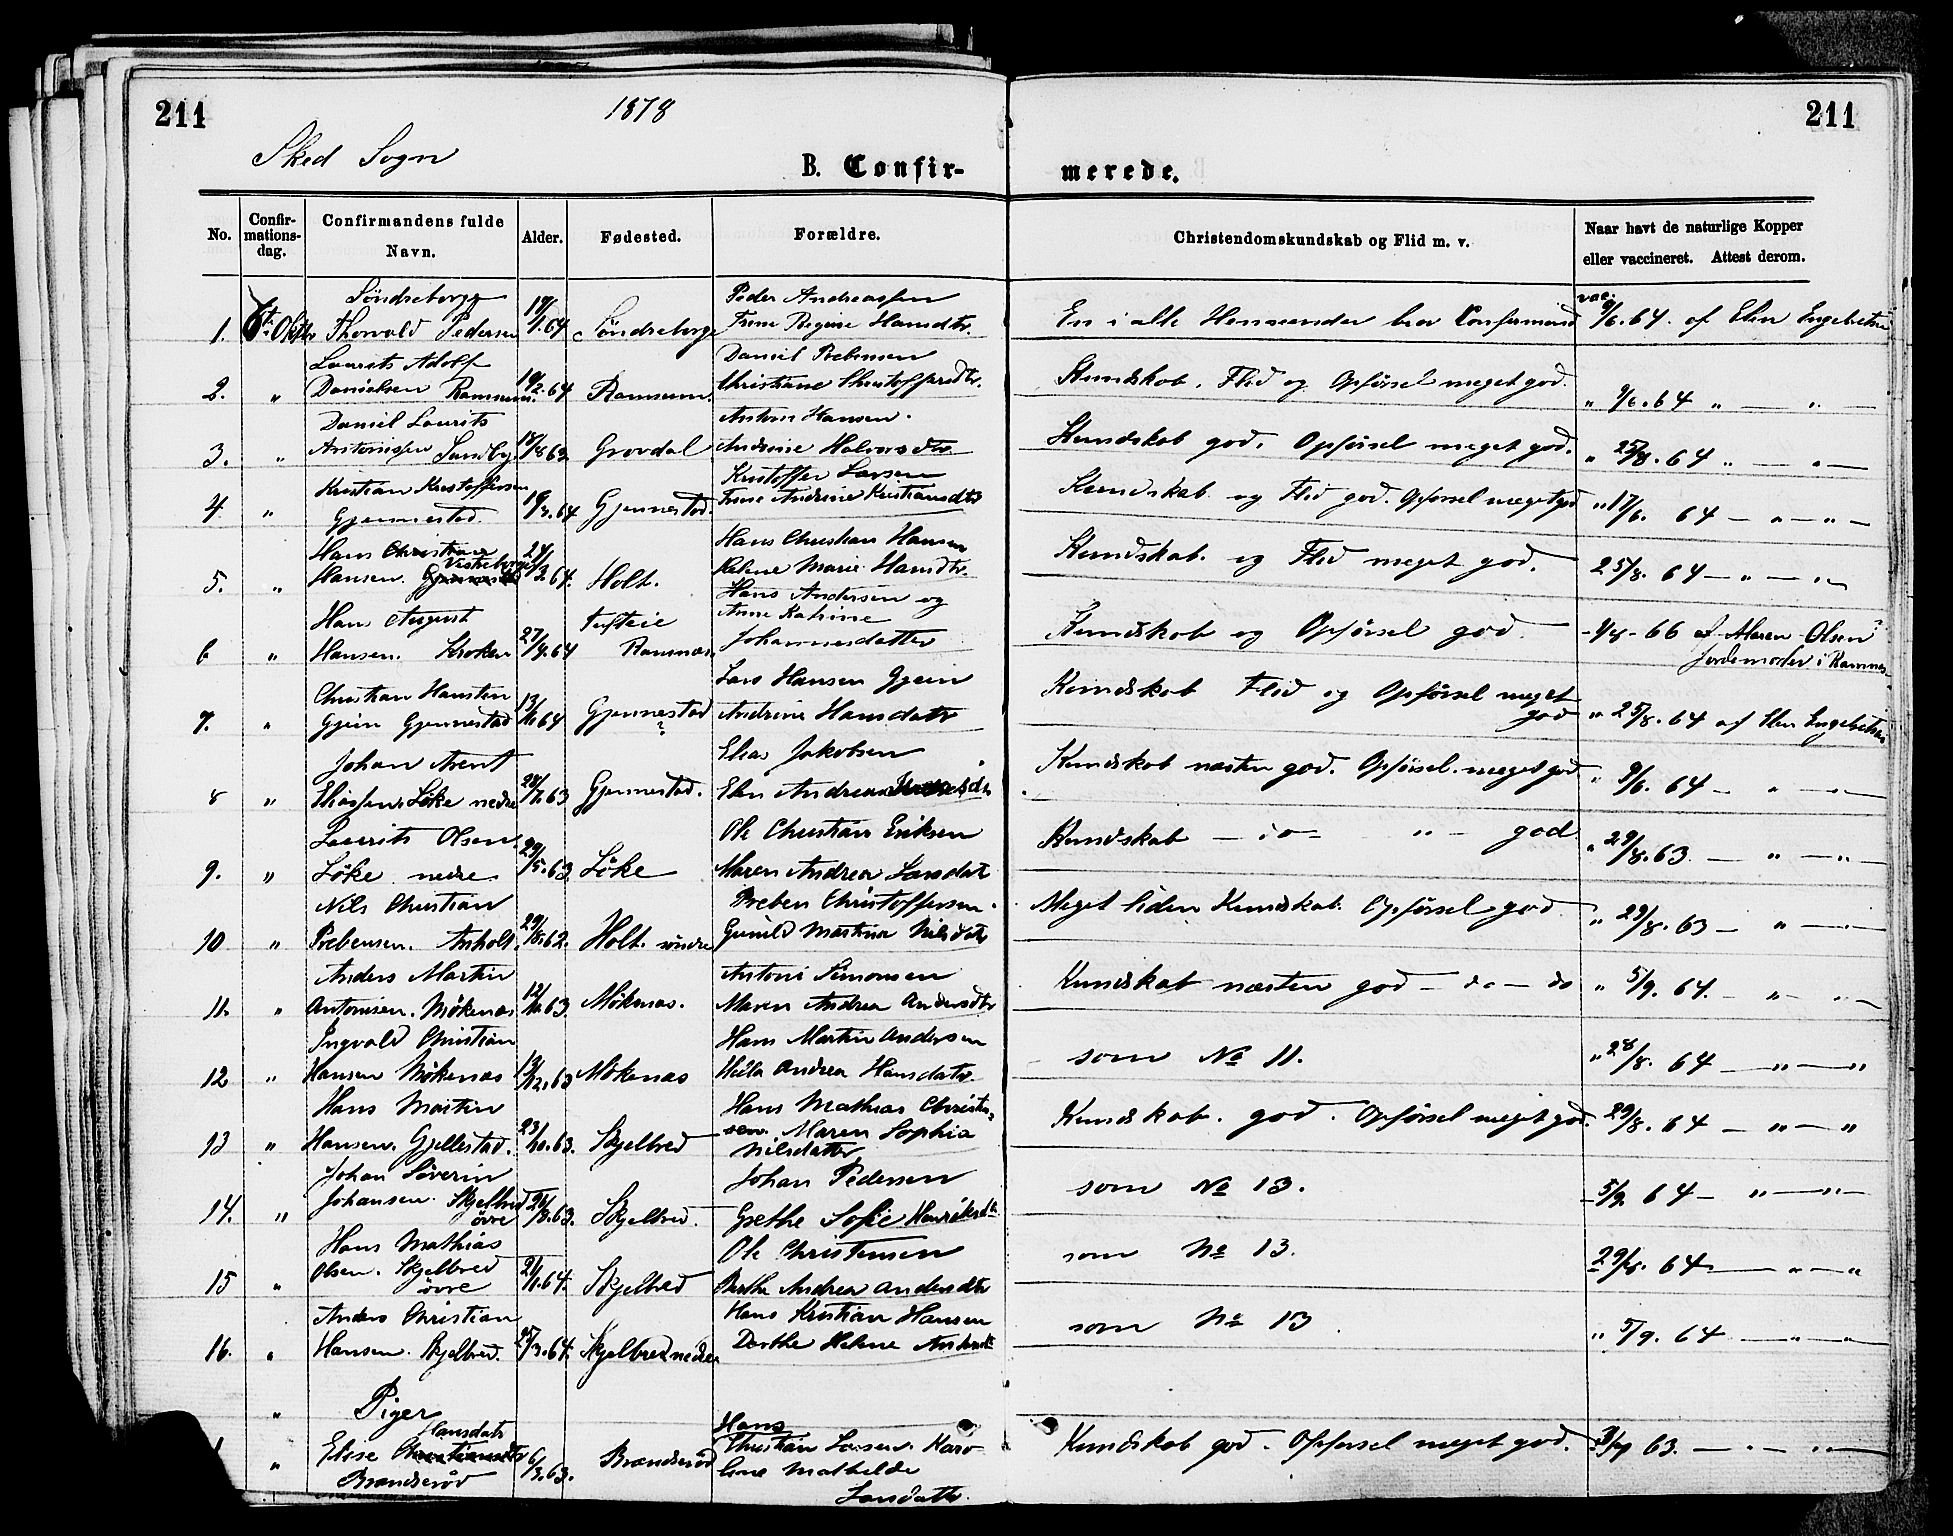 211
1878
211
Sked Sogn
B. Confirmerede.
No.
Confirmationsdag.
Confirmandens fulde Navn.
Alder.
Fødested.
Forældre.
Christendomskundskab og Flid m. v.
Naar havt de naturlige Kopper
eller vaccineret. Attest derom.
Söndreborge Peder Andreassen vac.
1. Thorvald Pedersen 64 Söndreborge Trine Regine Hansdtr. En i alle Henseender bra Confirmand 9/6. 64. af Elen Engebretsen
Laurits Adolf Daniel Prebensen
2. " Danielsen Ramsum. 19/2.64 Ramsum. Christiane Christoffersdtr. Kundskab, Flid og Opförsel meget god. " 9/6.64 " — " —
Daniel Laurits Anton Hansen.
3. " Antonisen Sundby. 18/8 63 Grovdal Andrine Halvorsdtr. Kundskab god. Opförsel meget god. " 25/8. 64 " — " —
Kristian Kristoffersen Kristoffer Larsen
4. " Gjennestad. 19/3.64 Gjennestad. Trine Andrine Kristiansdtr Kundskab og Flid god. Opförsel meget god " 17/6. 64 — " — " —
Hans Christian Hans Christian Hansen
5. " Hansen. 64. Holt. Helene Marie Hansdtr. Kundskab og Flid meget god. 25/8. 64 — " — "
Hans August Hans Andersen og
Anne Katrine
6 " Hansen. Kroken 27/4.64 Ramnæs. Johannesdatter Kundskab og Opförsel god. 66 af Maren Olsen
Jordemoder i Ramnæs
Christian Hansten Lars Hansen Gjein
7. " Gjein Gjennestad 64 Gjennestad ? Andrine Hansdatr Kundskab Flid og Opförsel meget
god " 25/8. 64 af Elen Engebretsen
Johan Arent Elias Jakobsen
8 " Eliassen. Löke nedre 63 Gjennestad. Elen Andrea Kundskab næsten god. Opförsel meget god " 9/6. 64 — " —
Laurits Olsen Ole Christian Eriksen
9. " Löke nedre 29/5.63 Löke Maren Andrea Larsdatr Kundskab — do — " — god " 29/8.63 — " — " —
Nils Christian Preben Christoffersen.
10 " Prebensen. Anholt. 29/8.62. Holt söndre Gunild Martina Nilsdatr Meget liden Kundskab. Opförsel god. " 29/8. 63 — " —
Anders Martin Antoni Simonsen
11. " Antonisen. Mökenas 63. Mökenas. Maren Andrea Andersdtr Kundskab næsten god — do — do " 5/9. 64. — " —
Ingvald Christian Hans Martin Andersen
12 " Hansen Mökenas 13/12.63 Mökenas Andrea Hansdatr. som No 11. " 28/8. 64 — " — "
Hans Martin Hans Mathias Christensen.
13 " Hansen. Gjellestad. 23/10.63. Skjelbred Maren Sophia Nilsdatter Kundskab. god. Opförsel meget god. 29/8. 64 — " — "
Johan Séverin Johan Pedersen
14. " Johansen. Skjelbred övre 63. Skjelbred. Grethe Sofie Henriksdtr som No 13. 5/9 64 — " — " —
Hans Mathias Ole Christensen
15 " Olsen. Skjelbred övre 21/1.64. Skjelbred Berthe Andrea Andersdtr som No 13. 29/8. 64 — " — "
Anders Christian Hans Kristian Hansen
16. " Hansen. Skjelbred. 25/3.64. Skjelbred nedre Dorthe Helene som No 13 " 5/9. 64 — " — "
" Piger
Hansdatr Hans
" Elise 6/3.63. Brændseröd Christian Larsen. Karoline Mathilde Kundskab god. Opförsel meget god. 63. — " — " —
Brændseröd Larsdatr.